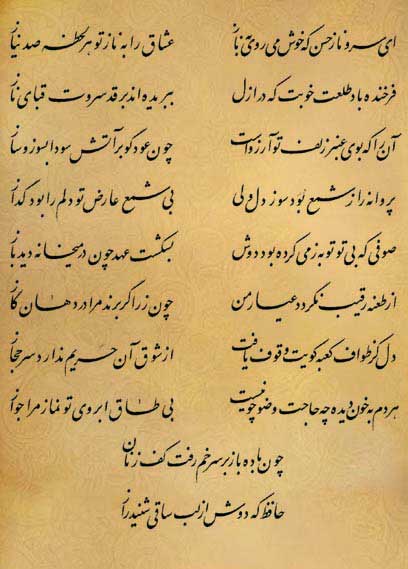 ای سرو ناز حسن که خوش می روی به ناز عشاق را به ناز تو هر لحظه صد نیاز
فرخنده باد طلعت خوبت که در ازل ببریده اند بر قد سروت قبای ناز
آن را که بوی عنبر زلف تو آرزوست چون عود گو بر آتش سودا بسوز و ساز
پروانه را ز شمع بود سوز دل ولی بی شمع عارض تو دلم را بود گداز
صوفی که بی تو توبه ز می کرده بود دوش بشکست عهد چون در میخانه دید باز
از طعنه رقیب نگردد عیار من چون زر اگر برند مرا در دهان گاز
دل کز طواف کعبه کویت وقوف یافت از شوق آن حریم ندارد سر حجاز
هر دم به خون دیده چه حاجت وضو چو نیست بی طاق ابروی تو نماز مرا جواز
چون باده باز بر سر خم رفت کف زنان
حافظ که دوش از لب ساقی شنید راز